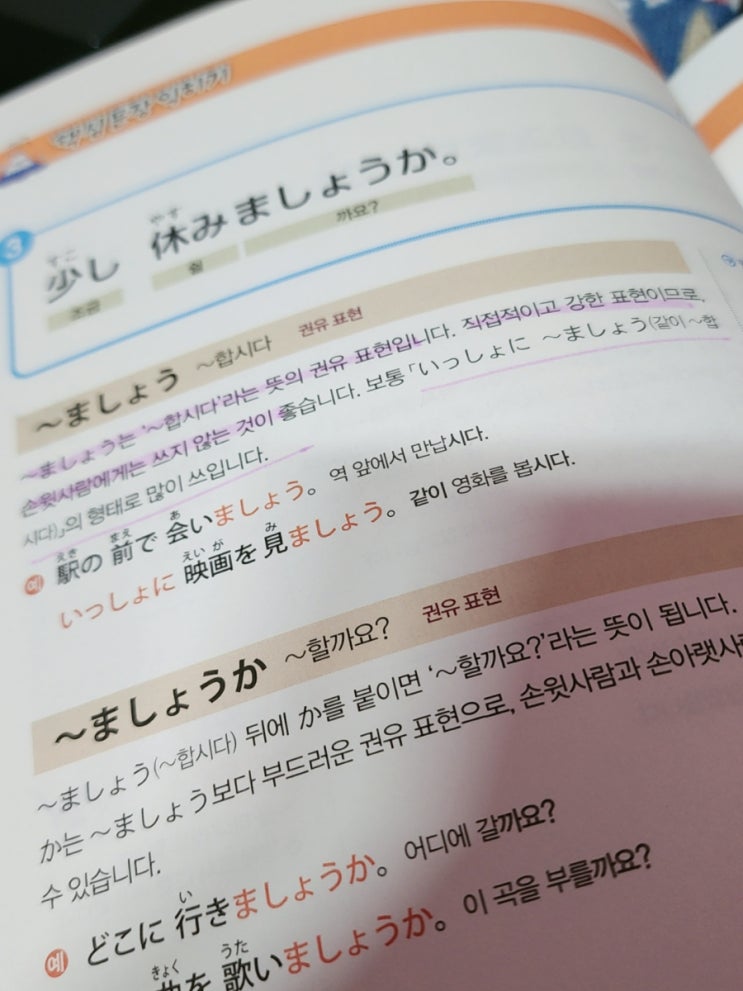 핵심 문장 익히기
3
すこ やす
少し 休みましょうか。
조금 쉴 까요?
~ましょう ~합시다 권유 표현
~ましょう는 '~합시다'라는 뜻의 권유 표현입니다. 직접적이고 강한 표현이므로,
손윗사람에게는 쓰지 않는 것이 좋습니다. 보통 「いっしょに ~ましょう(같이 ~합
시다)」의 형태로 많이 쓰입니다.
えき まえ あ
예 駅の 前で 会いましょう。 역 앞에서 만납시다.
えいが み
いっしょに 映画を 見ましょう。 같이 영화를 봅시다.
~ましょうか ~할까요? 권유 표현
~ましょう(~합시다) 뒤에 か를 붙이면 '~할까요?'라는 뜻이 됩니다.
か는 ~ましょう보다 부드러운 권유 표현으로, 손윗사람과 손아랫사
수 있습니다.
い
예 どこに 行きましょうか。 어디에 갈까요?
きょく うた
曲を 歌いましょうか。 이 곡을 부를까요?